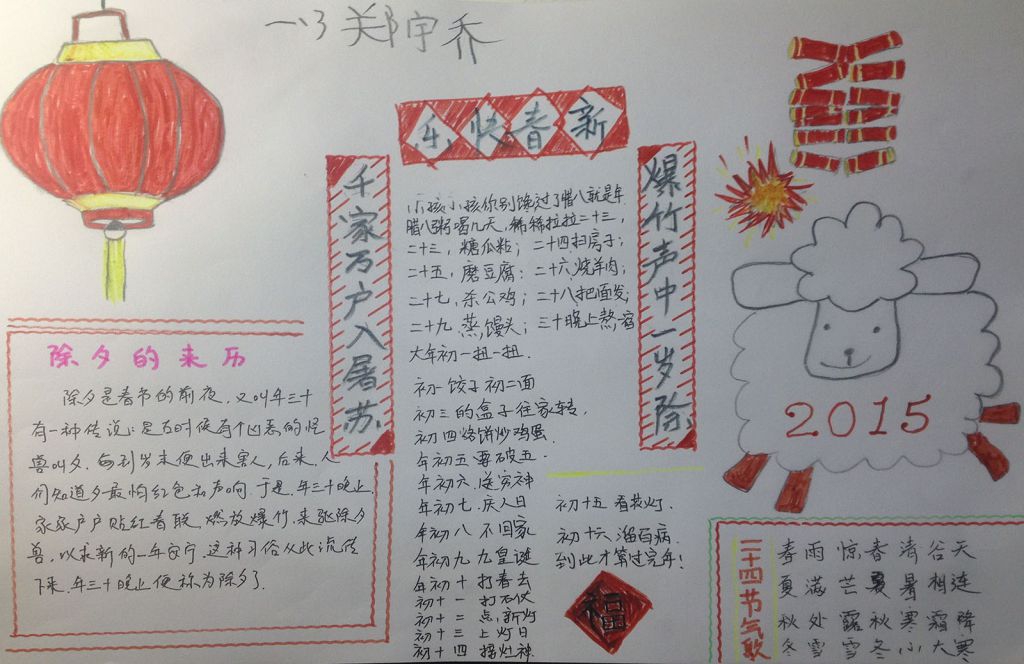 一、3 郑宇乔
乐快春新
千家万户入屠苏
爆竹声中一岁除
小孩小孩你别馋过了腊八就是年
腊八粥喝几天，稀稀拉拉二十三，
二十三，糖瓜粘；二十四扫房子；
二十五，磨豆腐；二十六烧羊肉；
二十七，杀公鸡；二十八把面发；
二十九，蒸馒头；三十晚上熬一宿
大年初一扭一扭.
初一饺子初二面
初三的盒子往家转，
初四烙饼炒鸡蛋.
年初五要破五.
年初六.送穷神
年初七.庆人日
年初八 不回家
年初九 九皇诞
年初十 打春去
初十一 打石仗
初十二 点新灯
初十三 上灯日
初十四 摆灶神
初十五 看花灯.
初十六 溜百病.
到此才算过完年！
福
除夕的来历
除夕是春节的前夜，又叫年三十
有一种传说：是古时候有个凶恶的怪
兽叫夕，每到岁末便出来害人，后来，人
们知道夕最怕红色和声响.于是.年三十晚上.
家家户户贴红春联、燃放爆竹，来驱除夕
兽，以求新的一年安宁.这种习俗从此流传
下来.年三十晚上便称为除夕了.
2015
二十四节气歌
春雨惊春清谷天
夏满芒夏暑相连
秋处露秋寒霜降
冬雪雪冬小大寒